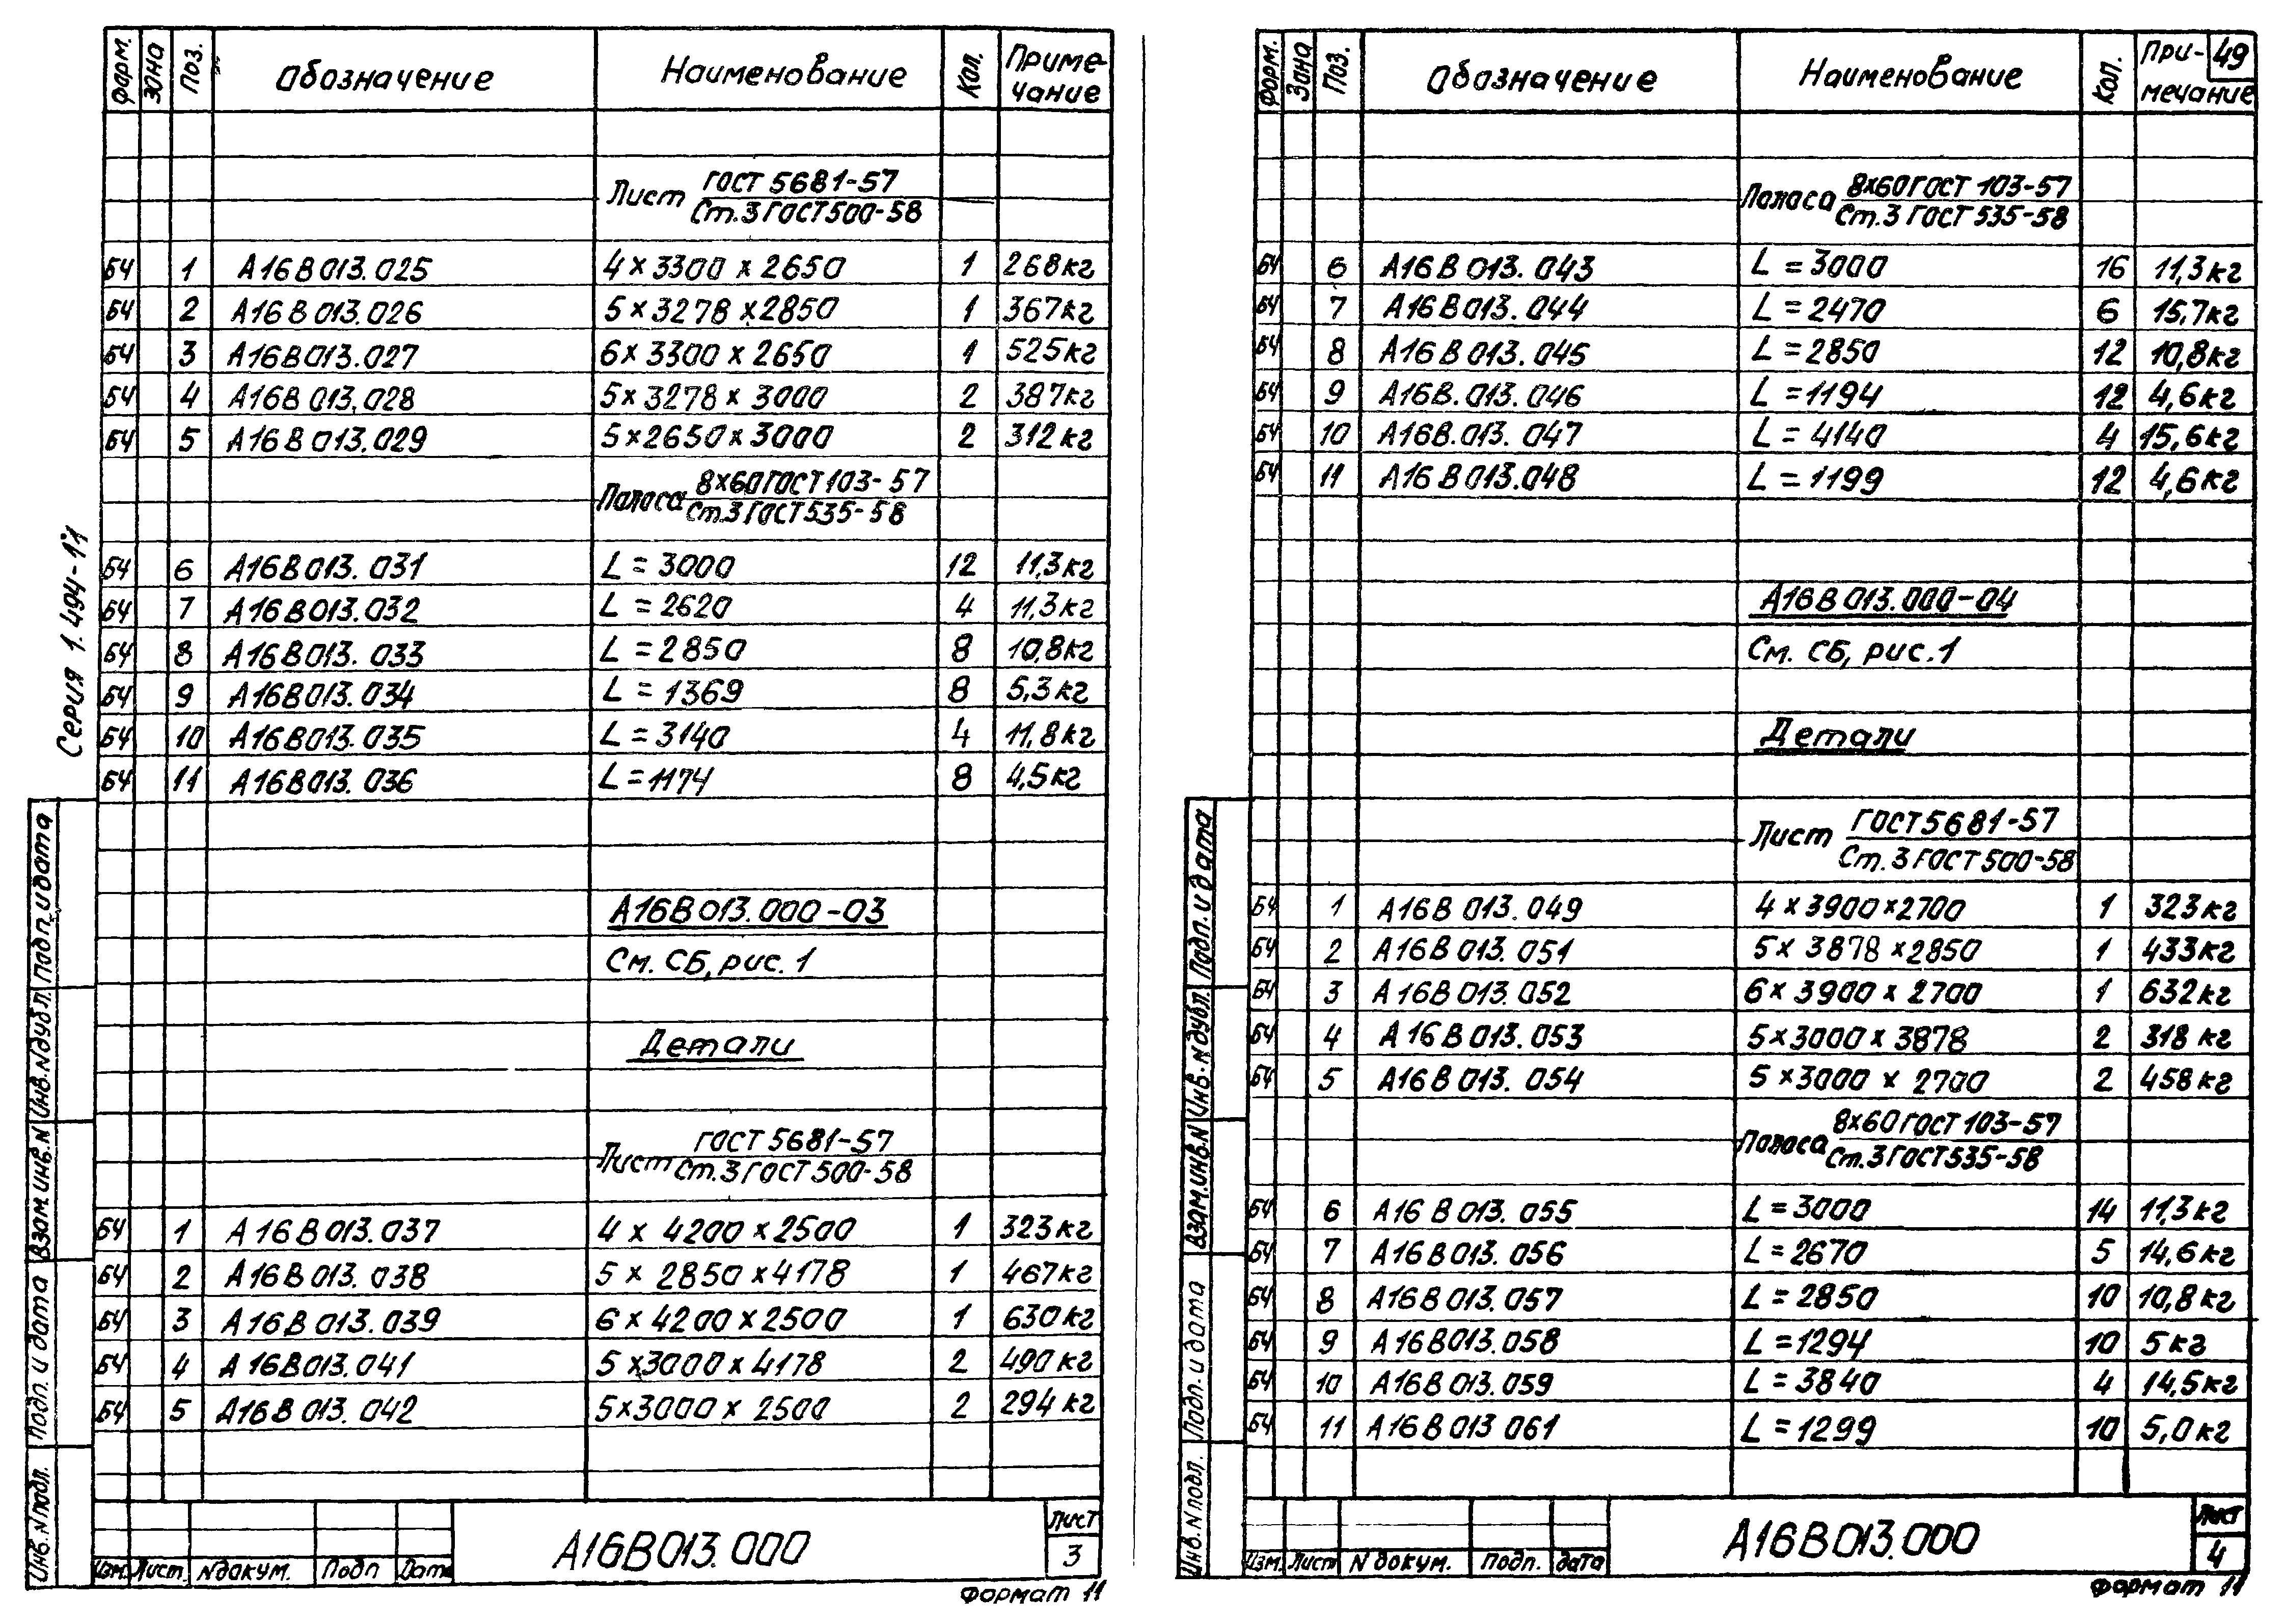 Форм. Зона Поз. Обозначение Наименование Кол. Приме-
чание
Лист ГОСТ 5681-57
Ст.3 ГОСТ 500-58
БЧ 1 А16В013.025 4×3300×2650 1 268кг
БЧ 2 А16В013.026 5×3278×2850 1 367кг
БЧ 3 А16В013.027 6×3300×2650 1 525кг
БЧ 4 А16В013.028 5×3278×3000 2 387кг
БЧ 5 А16В013.029 5×2650×3000 2 312кг
Полоса 8×60 ГОСТ 103-57
Ст.3 ГОСТ 535-58
БЧ 6 А16В013.031 L=3000 12 11,3кг
БЧ 7 А16В013.032 L=2620 4 11,3кг
БЧ 8 А16В013.033 L=2850 8 10,8кг
БЧ 9 А16В013.034 L=1369 8 5,3кг
БЧ 10 А16В013.035 L=3140 4 11,8кг
БЧ 11 А16В013.036 L=1174 8 4,5кг
А16В013.000-03
См. СБ, рис. 1
Детали
Лист ГОСТ 5681-57
Ст.3 ГОСТ 500-58
БЧ 1 А16В013.037 4×4200×2500 1 323кг
БЧ 2 А16В013.038 5×2850×4178 1 467кг
БЧ 3 А16В013.039 6×4200×2500 1 630кг
БЧ 4 А16В013.041 5×3000×4178 2 490кг
БЧ 5 А16В013.042 5×3000×2500 2 294кг
Серия 1.494-11
Подп. и дата
Инв. N дубл.
Взам. инв. N
Подп. и дата
Инв. N подл.
Изм. Лист. N докум. Подп Дата
А16В013.000
Лист
3
Формат 11
Форм. Зона Поз. Обозначение Наименование Кол. При-
мечание
49
Полоса 8×60 ГОСТ 103-57
Ст.3 ГОСТ 535-58
БЧ 6 А16В013.043 L=3000 16 11,3кг
БЧ 7 А16В013.044 L=2470 6 15,7кг
БЧ 8 А16В013.045 L=2850 12 10,8кг
БЧ 9 А16В.013.046 L=1194 12 4,6кг
БЧ 10 А16В.013.047 L=4140 4 15,6кг
БЧ 11 А16В013.048 L=1199 12 4,6кг
А16В013.000-04
См. СБ, рис. 1
Детали
Лист ГОСТ 5681-57
Ст.3 ГОСТ 500-58
БЧ 1 А16В013.049 4×3900×2700 1 323кг
БЧ 2 А16В013.051 5×3878×2850 1 433кг
БЧ 3 А16В013.052 6×3900×2700 1 632кг
БЧ 4 А16В013.053 5×3000×3878 2 318кг
БЧ 5 А16В013.054 5×3000×2700 2 458кг
Полоса 8×60 ГОСТ 103-57
Ст.3 ГОСТ 535-58
БЧ 6 А16В013.055 L=3000 14 11,3кг
БЧ 7 А16В013.056 L=2670 5 14,6кг
БЧ 8 А16В013.057 L=2850 10 10,8кг
БЧ 9 А16В013.058 L=1294 10 5кг
БЧ 10 А16В013.059 L=3840 4 14,5кг
БЧ 11 А16В013 061 L=1299 10 5,0кг
Подп. и дата
Инв. N дубл.
Взам. инв. N
Подп. и дата
Инв. N подл.
Изм. Лист N докум. Подп. дата
А16В013.000
Лист
4
Формат 11